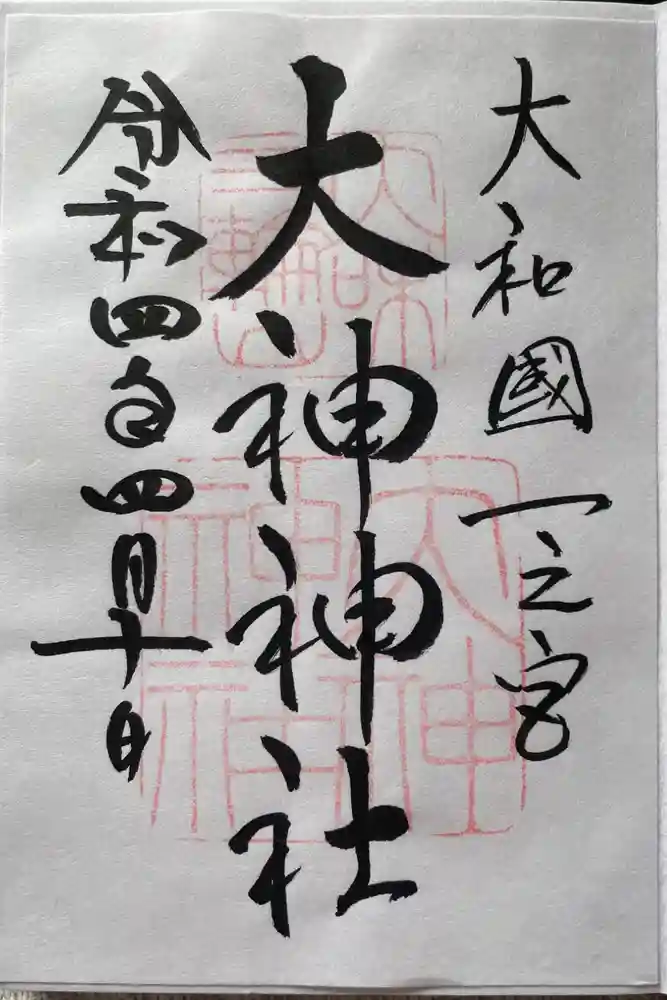 大和國一之宮
大神神社
令和四年四月十日
大神
神社